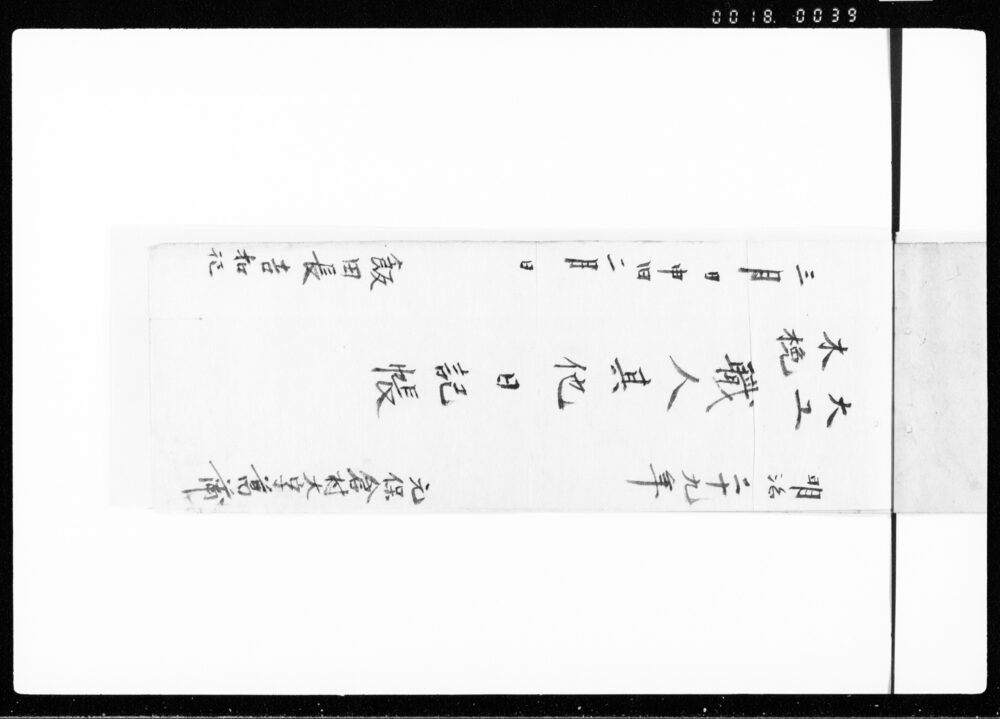 0018. 0039
明治二十九年
元保倉村大字
大工
木挽
職人其他日記帳
三月 日申旧二月 日
飯田長吉